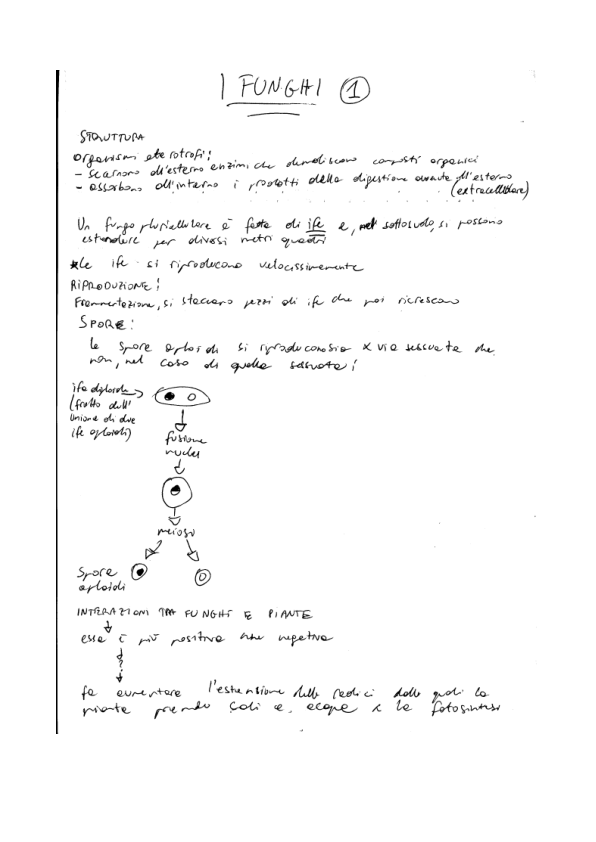 I FUNGHI 1
STRUTTURA
organismi eterotrofi:
- scarnono all'esterno enzimi che demoliscono composti organici
- assorbono all'interno i prodotti della digestione avvenute all'esterno
(extracellulare)
Un fungo pluricellulare è fatto di ife e, nel sottosuolo, si possono
estendere per diversi metri quadri
le ife si riproducono velocissimamente
RIPRODUZIONE:
Frammentazione, si staccano pezzi di ife che poi ricrescono
SPORE:
le spore aploidi si riproducono sia x via sessuata che
non, nel caso di quella sessuata:
ifa diploide
(frutto dell'
unione di due
ife aploidi)
fusione
nuclei
meiosi
Spore
aploidi
INTERAZIONI TRA FUNGHI E PIANTE
essa è più positiva che negativa
?
fa aumentare l'estensione delle radici dalle quali la
pianta prende sali e acqua x la fotosintesi